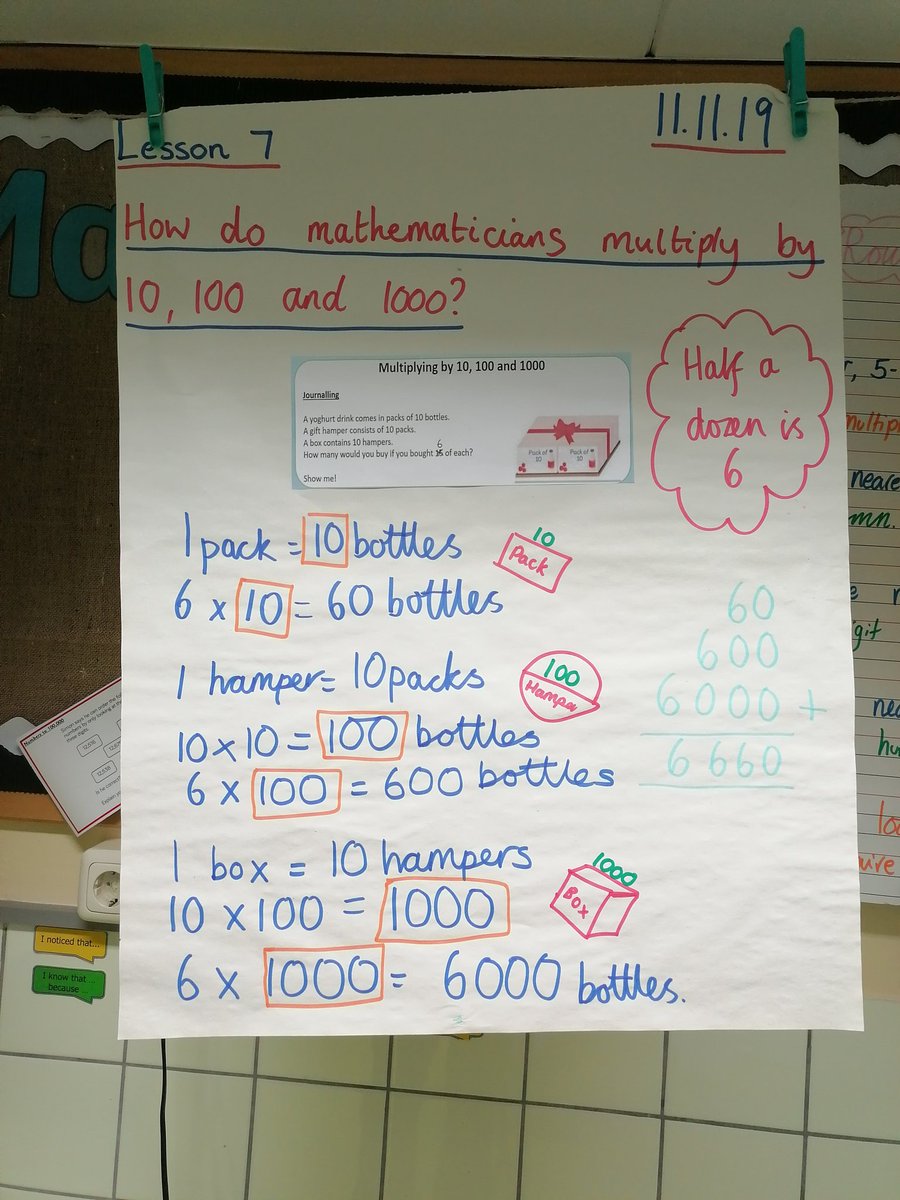 Lesson 7
11.11.19
How do mathematicians multiply by
10, 100 and 1000?
Multiplying by 10, 100 and 1000
Journalling
A yoghurt drink comes in packs of 10 bottles.
A gift hamper consists of 10 packs.
A box contains 10 hampers.
How many would you buy if you bought 6 of each?
Show me!
Pack of 10
Pack of 10
Half a
dozen is
6
1 pack = 10 bottles
10
Pack
6 x 10 = 60 bottles
1 hamper = 10 packs
100
Hamper
10 x 10 = 100 bottles
6 x 100 = 600 bottles
60
600
6000 +
6660
1 box = 10 hampers
1000
Box
10 x 100 = 1000
6 x 1000 = 6000 bottles.
Ma
Numbers to 100,000
I noticed that...
I know that ...
because